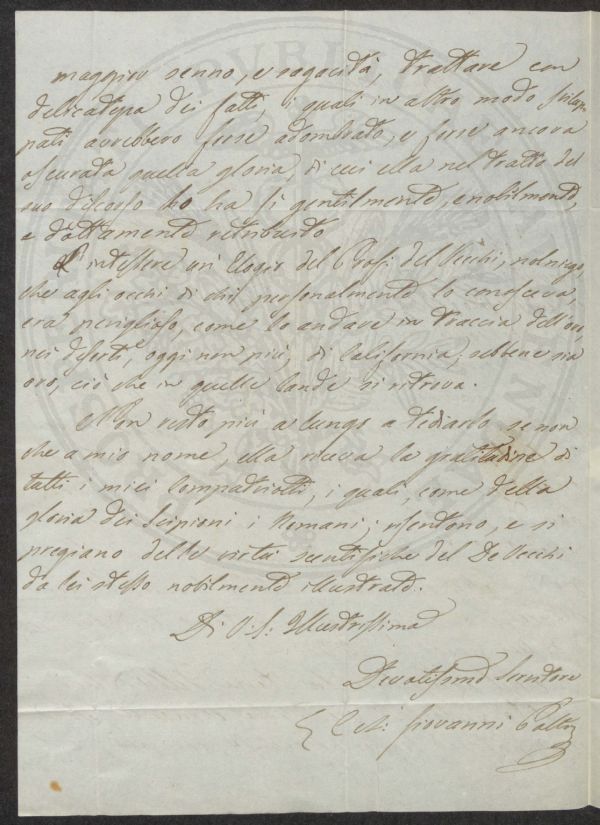 maggior senno, e sagacità, trattare con
delicatezza dei fatti, i quali in altro modo svilup-
pati avrebbero forse adombrato, e forse ancora
oscurata quella gloria, di cui ella nel tratto del
suo discorso ha sì gentilmente, e nobilmente,
e dottamente retribuito
intessere un Elogio del Prof. del Vecchi, nol niego,
che agli occhi di chi personalmente lo conosceva,
era periglioso, come lo andare in traccia dell'oro,
nei deserti, oggi non più, di California; sebbene sia
oro, ciò che in quelle lande si ritrova.
Non resto più a lungo a tediarlo, se non
che a mio nome, ella riceva la gratitudine di
tutti i miei Compatriotti, i quali, come della
gloria dei Scipioni i Romani; risentono, e si
pregiano delle virtù scentifiche del De Vecchi
da lei stesso nobilmente illustrate.
Di V: S: Illustrissima
Devotissimo Servitore
Giovanni